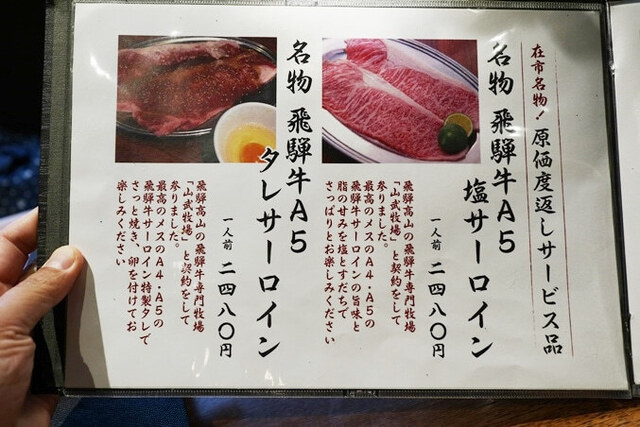 在市名物！原価度返しサービス品
名物 飛騨牛A5
塩サーロイン
一人前 二四八〇円
飛騨高山の飛騨牛専門牧場
「山武牧場」と契約をして
参りました。
最高のメスのA４・A５の
飛騨牛サーロインの旨味と
脂の甘みを塩とすだちで
さっぱりとお楽しみください
名物 飛騨牛A5
タレサーロイン
一人前 二四八〇円
飛騨高山の飛騨牛専門牧場
「山武牧場」と契約をして
参りました。
最高のメスのA４・A５の
飛騨牛サーロイン特製タレで
さっと焼き、卵を付けてお
楽しみください